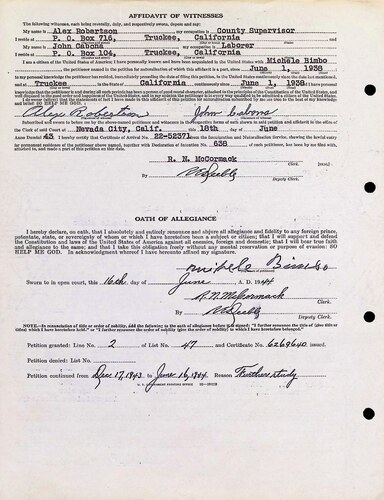 AFFIDAVIT OF WITNESSES
The following witnesses, each being severally, duly, and respectively sworn, depose and say:
My name is Alex Robertson, my occupation is County Supervisor
I reside at P. O. Box 716, Truckee, California
My name is John Cabona, my occupation is Laborer
I reside at P. O. Box 104, Truckee, California
I am a citizen of the United States of America; I have personally known and have been acquainted in the United States with Michele Bimbo
, the petitioner named in the petition for naturalization of which this affidavit is a part, since June 1, 1938
to my personal knowledge the petitioner has resided, immediately preceding the date of filing this petition, in the United States continuously since the date last mentioned,
and at Truckee, in the State of California continuously since June 1, 1938,
HELP ME GOD.
Alex Robertson John Cabona
Subscribed and sworn to before me by the above-named petitioner and witnesses in the respective forms of oath shown in said petition and affidavit in the office
of the Clerk of said Court at Nevada City, Calif. this 18th day of June
Anno Domini 19 43 I hereby certify that Certificate of Arrival No. 22-52371 from the Immigration and Naturalization Service, showing the lawful entry
for permanent residence of the petitioner above named, together with Declaration of Intention No. 638 of such petitioner, has been by me filed with,
attached to, and made a part of this petition on this date.
R. N. McCormack
Clerk.
By
Deputy Clerk.
OATH OF ALLEGIANCE
I hereby declare, on oath, that I absolutely and entirely renounce and abjure all allegiance and fidelity to any foreign prince,
potentate, state, or sovereignty of whom or which I have heretofore been a subject or citizen; that I will support and defend
the Constitution and laws of the United States of America against all enemies, foreign and domestic; that I will bear true faith
and allegiance to the same; and that I take this obligation freely without any mental reservation or purpose of evasion: SO
HELP ME GOD. In acknowledgment whereof I have hereunto affixed my signature.
Michele Bimbo
Sworn to in open court, this 16th day of June A. D. 1944
R. N. McCormack
Clerk.
By
Deputy Clerk.
NOTE.—In renunciation of title or order of nobility, add the following to the oath of allegiance before it is signed: "I further renounce the title of (give title or
titles) which I have heretofore held," or "I further renounce the order of nobility (give the order of nobility) to which I have heretofore belonged."
Petition granted: Line No. 2 of List No. 47 and Certificate No. 6268640 issued.
Petition denied: List No.
Petition continued from Dec 17, 1943 to June 16, 1944 Reason Further study